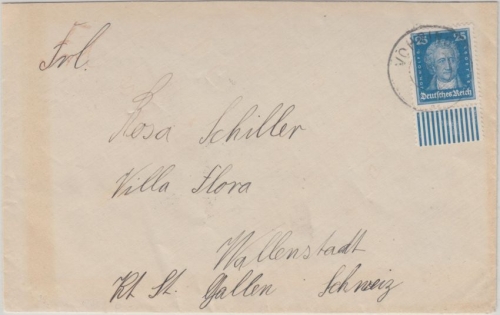 25 25
Deutsches Reich
VÖH
Frl.
Rosa Schiller
Villa Flora
Wallenstadt
Kt St. Gallen Schweiz